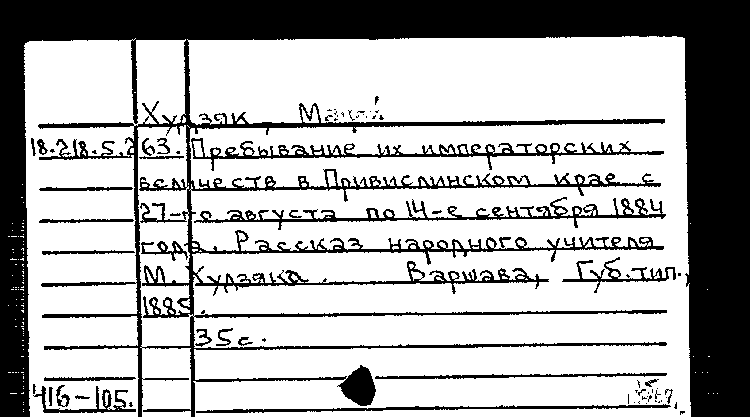 Худзяк,
18.218.5.263. Пребывание их императорских
величеств в Привислинском крае с
27-го августа по 14-е сентября 1884
года. Рассказ народного учителя
М. Худзяка. Варшава, Губ. тип.,
1885.
35с.
416-105.